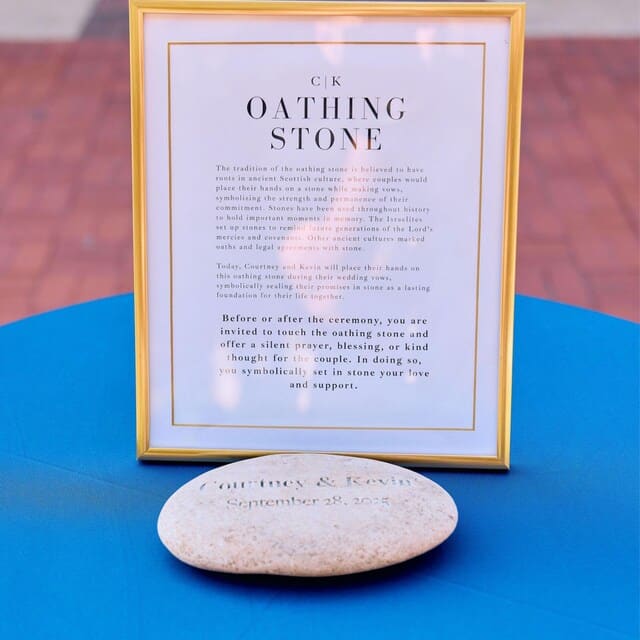 C|K
OATHING
STONE
The tradition of the oathing stone is believed to have
roots in ancient Scottish culture, where couples would
place their hands on a stone while making vows,
symbolizing the strength and permanence of their
commitment. Stones have been used throughout history
to hold important moments in memory. The Israelites
set up stones to remind future generations of the Lord's
mercies and covenants. Other ancient cultures marked
oaths and legal agreements with stone.
Today, Courtney and Kevin will place their hands on
this oathing stone during their wedding vows,
symbolically sealing their promises in stone as a lasting
foundation for their life together.
Before or after the ceremony, you are
invited to touch the oathing stone and
offer a silent prayer, blessing, or kind
thought for the couple. In doing so,
you symbolically set in stone your love
and support.
Courtney & Kevin
September 28, 2025